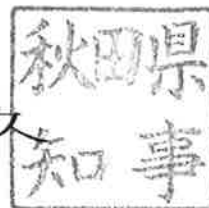 秋田県
知事